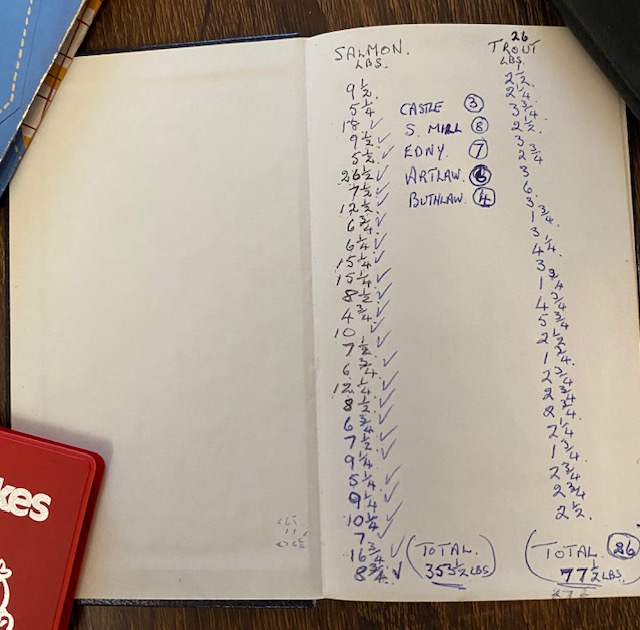 SALMON.
LBS.
9½.
5¼
18 ✓
9½ ✓
5½ ✓
26½ ✓
7½ ✓
12½ ✓
6¾ ✓
6¼ ✓
15¼ ✓
15¼ ✓
8½ ✓
4¾ ✓
10 ✓
7½ ✓
6¾ ✓
12¼ ✓
8½ ✓
6¾ ✓
7½ ✓
9¼ ✓
5¼ ✓
9¼ ✓
10¼ ✓
7 ✓
16¾ ✓
8¾ ✓
CASTLE 3
S. MILL 8
EDNY. 7
ARTLAW 6
BUTHLAW. 4
(TOTAL.
353½ LBS)
26
TROUT
LBS.
2½.
2¼
3¾
2½
3
2¾
3
6.
3
1¾
3
4¼
3
1¾
4¾
5¾
2½
1¾
2¾
2¾
2¾
2¼
1¾
2¾
2¾
2½.
(TOTAL. 26
77½ LBS.)
kes